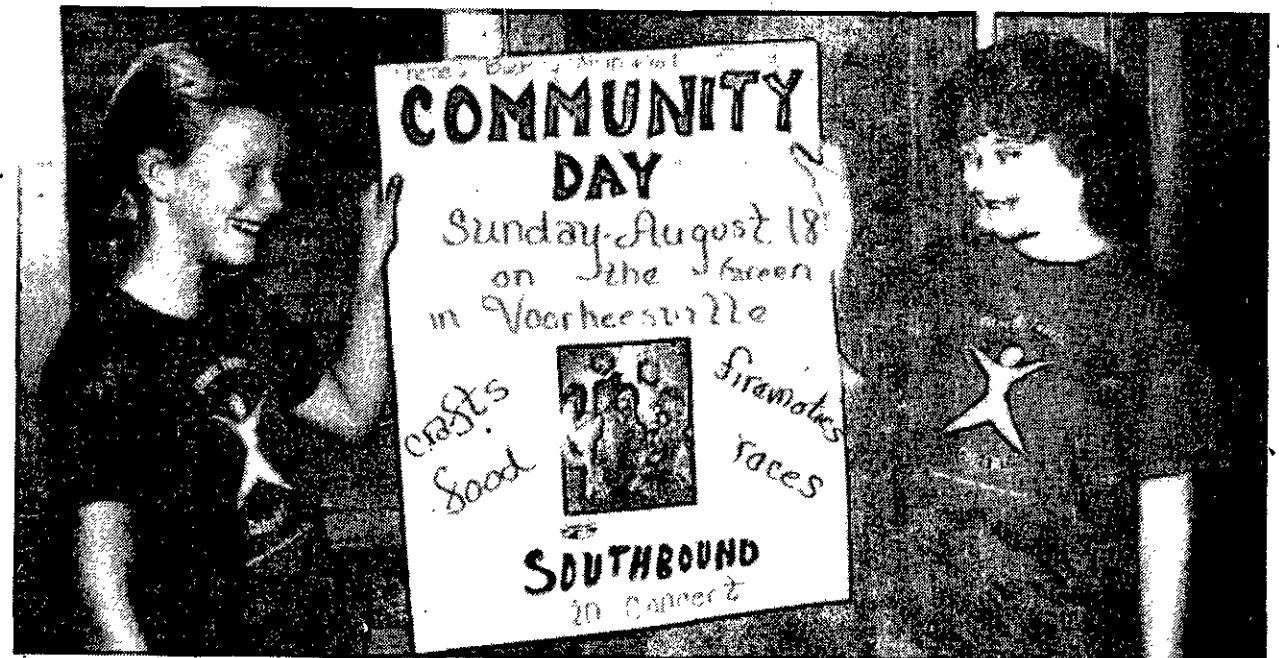 COMMUNITY
DAY
Sunday-August 18
on the Green
in Voorheesville
crafts
food
firemotics
races
SOUTHBOUND
in concert